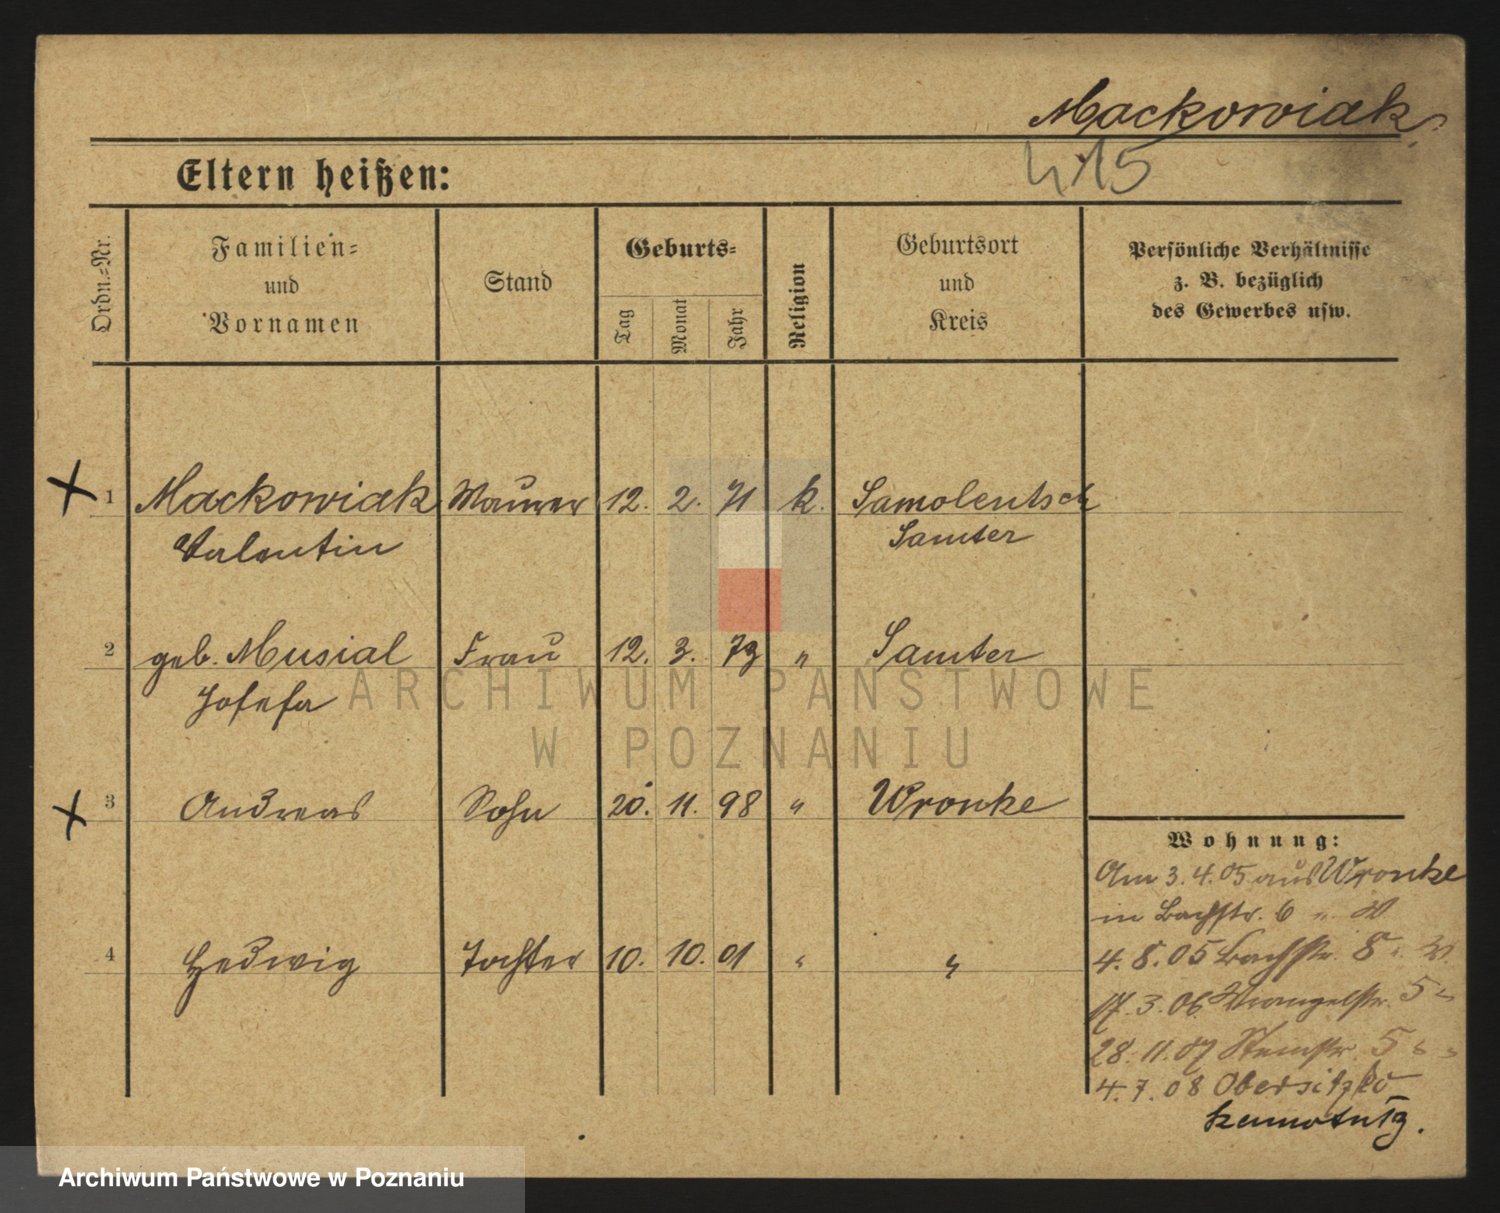 Mackowiak
Eltern heißen:
415
Ordn.=Nr.
Familien=
und
Vornamen
Stand
Geburts=
Tag
Monat
Jahr
Religion
Geburtsort
und
Kreis
Persönliche Verhältnisse
z. B. bezüglich
des Gewerbes usw.
1 Mackowiak Maurer 12. 2. 71 k. Samolentsch
Valentin Samter
2 geb. Musial Frau 12. 3. 73 " Samter
Josefa
ARCHIWUM PAŃSTWOWE
W POZNANIU
3 Andreas Sohn 20. 11. 98 " Wronke
4 Hedwig Tochter 10. 10. 01 " "
Wohnung:
Am 3.4.05 aus Wronke
in Bachstr. 6 " W
4.8.05 Bachstr. 8 " W.
17.3.06 Wrangelstr. 5 "
28.11.07 Steinstr. 5 " "
4.7.08 Obersitzko
Archiwum Państwowe w Poznaniu